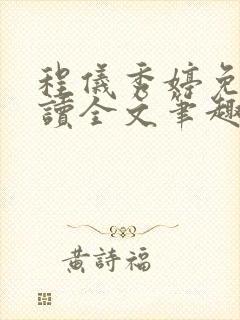 程儀秀婷免
讀全文筆趣
黃詩福